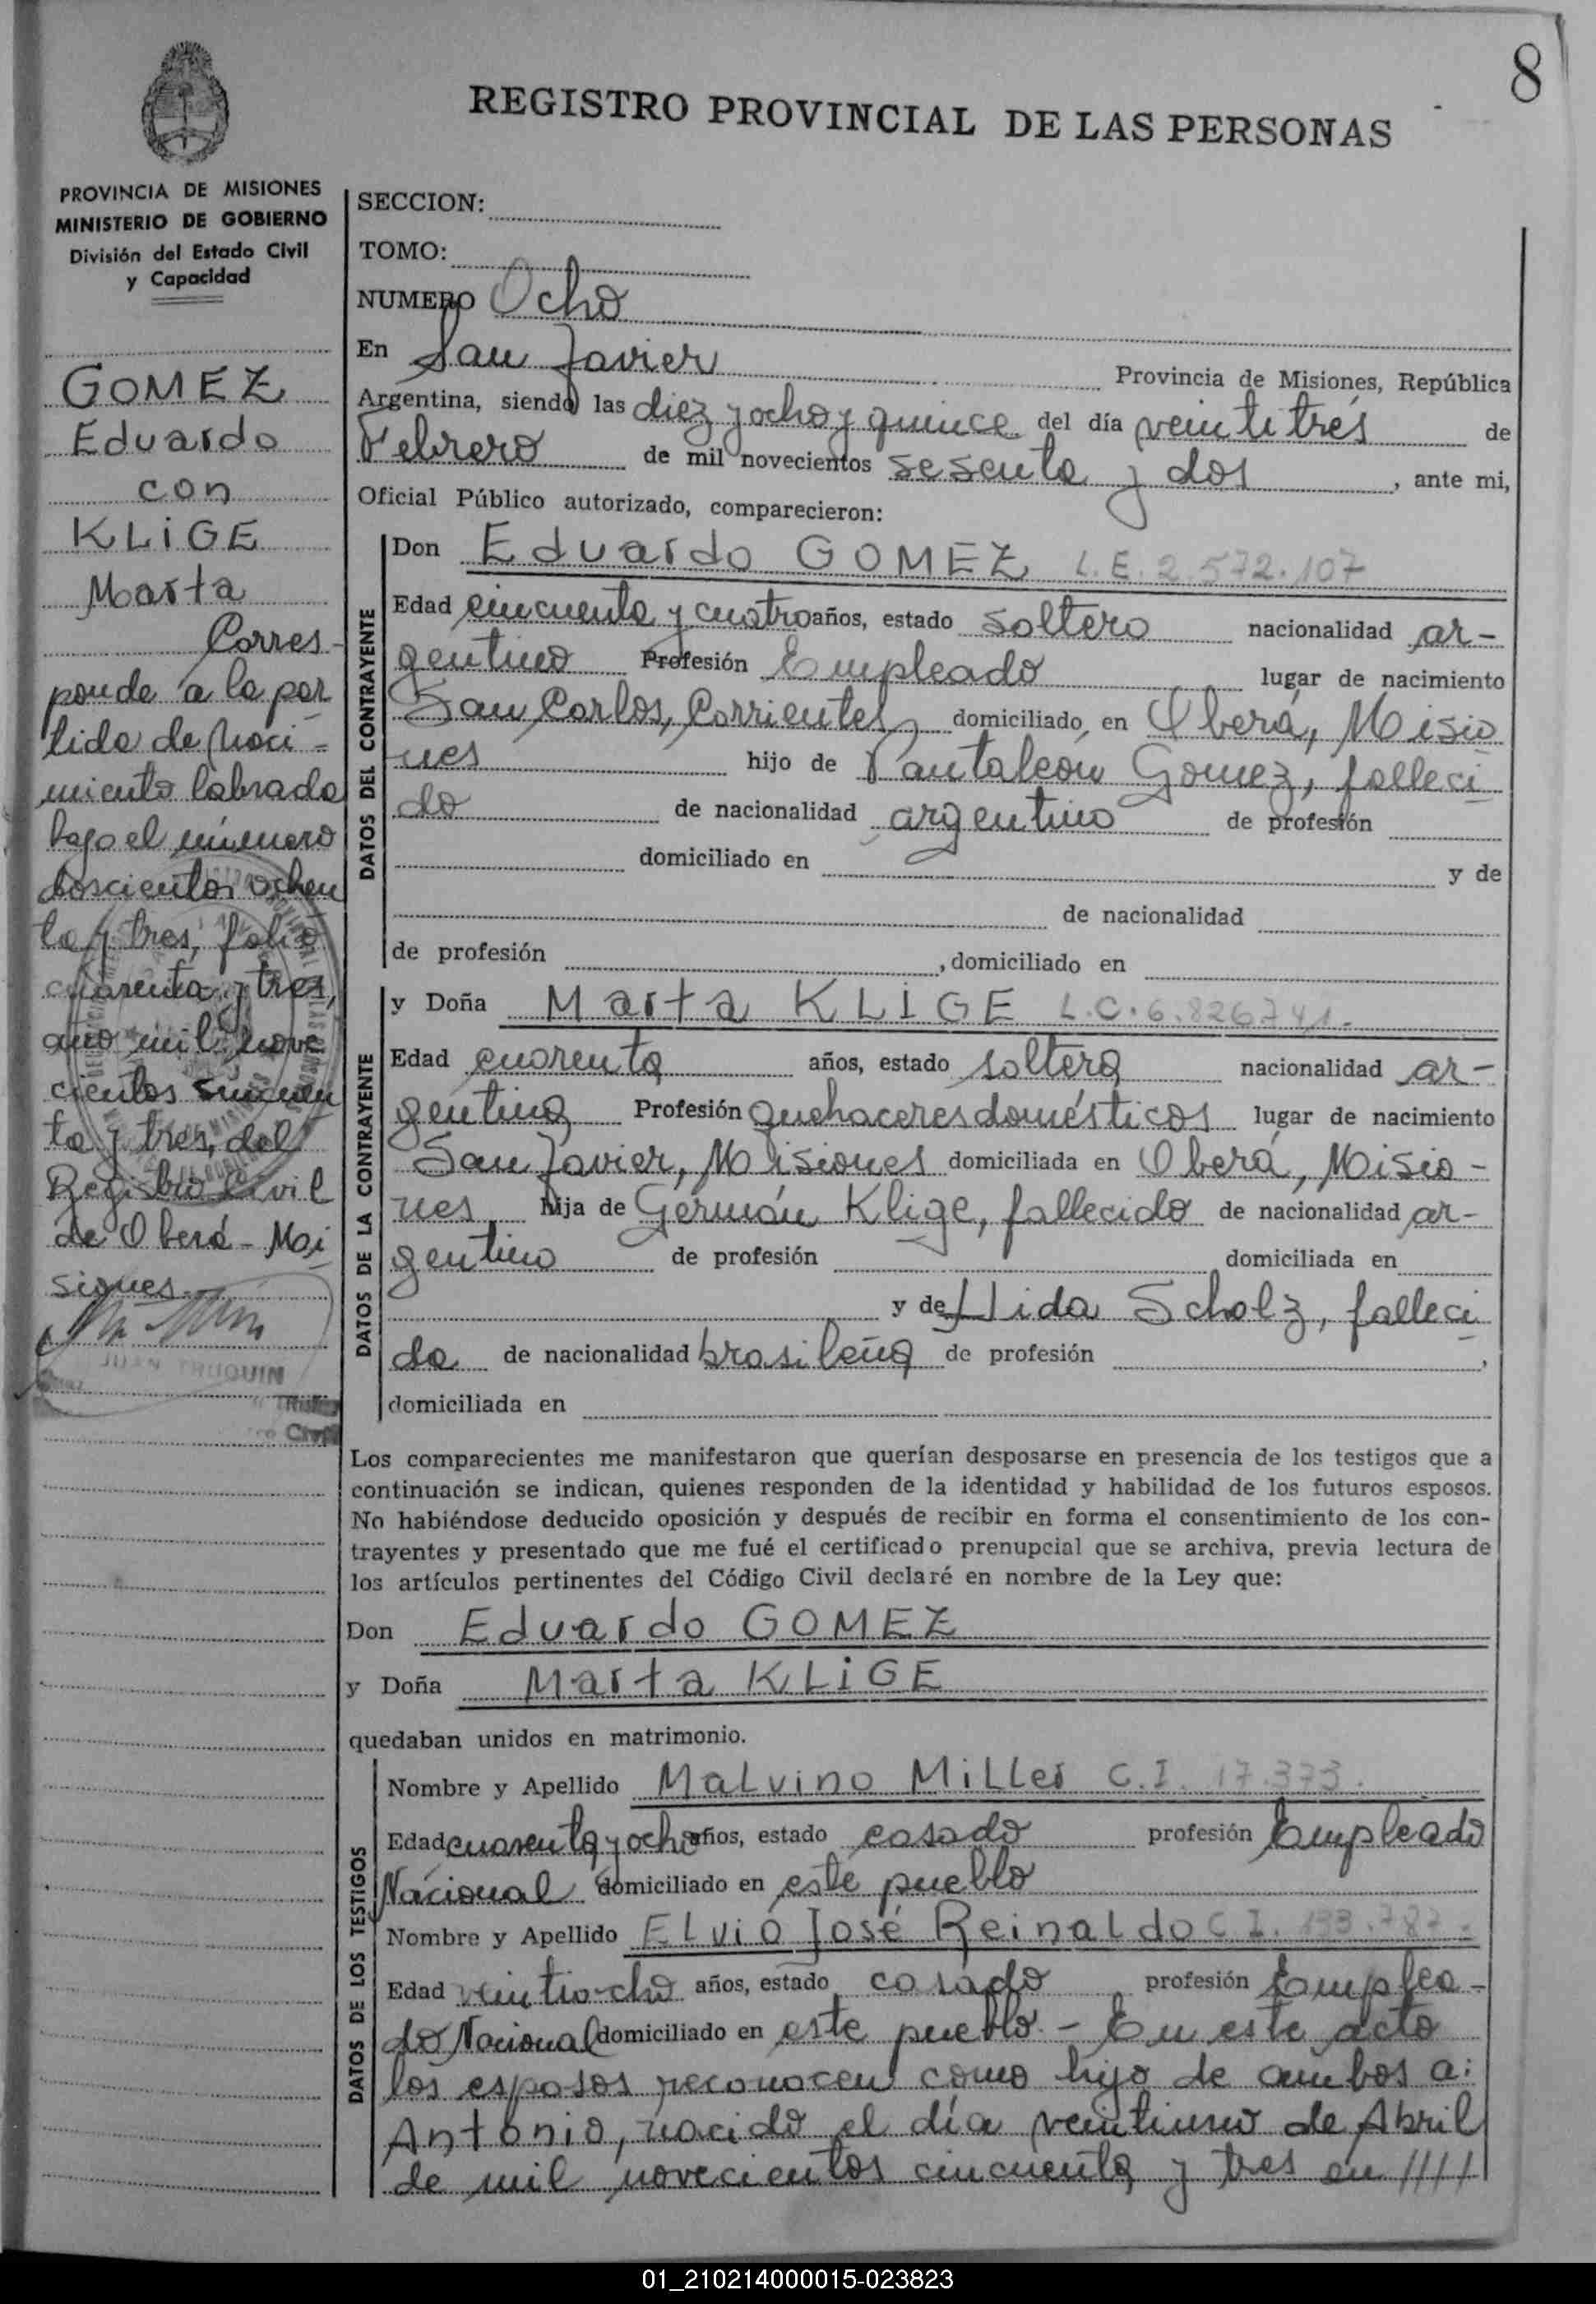 8
REGISTRO PROVINCIAL DE LAS PERSONAS
PROVINCIA DE MISIONES
MINISTERIO DE GOBIERNO
División del Estado Civil
y Capacidad
GOMEZ
Eduardo
con
KLIGE
Marta
Corres-
ponde a la par
tida de naci=
miento labrada
bajo el número
doscientos ochen
ta y tres, folio
cuarenta y tres,
año mil nove
cientos cincuen
ta y tres, del
Registro Civil
de Oberá - Mi
siones
JUAN TRUQUIN
SECCION:
TOMO:
NUMERO Ocho
En San Javier Provincia de Misiones, República
Argentina, siendo las diez y ocho y quince del día veintitrés de
Febrero de mil novecientos sesenta y dos, ante mi,
Oficial Público autorizado, comparecieron:
DATOS DEL CONTRAYENTE
Don Eduardo GOMEZ L.E. 2.572.107
Edad cincuenta y cuatro años, estado soltero nacionalidad ar-
gentino Profesión Empleado lugar de nacimiento
San Carlos, Corrientes, domiciliado en Oberá, Misio
nes hijo de Pantaleón Gomez, falleci
do de nacionalidad argentino de profesión
domiciliado en y de
de nacionalidad
de profesión , domiciliado en
DATOS DE LA CONTRAYENTE
y Doña Marta KLIGE L.C. 6.826741.-
Edad cuarenta años, estado soltera nacionalidad ar-
gentina Profesión quehaceres domésticos lugar de nacimiento
San Javier, Misiones domiciliada en Oberá, Misio-
nes hija de Germán Klige, fallecido de nacionalidad ar-
gentino de profesión domiciliada en
y de Hida Scholz, falleci
da de nacionalidad brasileña de profesión ,
domiciliada en
Los comparecientes me manifestaron que querían desposarse en presencia de los testigos que a
continuación se indican, quienes responden de la identidad y habilidad de los futuros esposos.
No habiéndose deducido oposición y después de recibir en forma el consentimiento de los con-
trayentes y presentado que me fué el certificado prenupcial que se archiva, previa lectura de
los artículos pertinentes del Código Civil declaré en nombre de la Ley que:
Don Eduardo GOMEZ
y Doña Marta KLIGE
quedaban unidos en matrimonio.
DATOS DE LOS TESTIGOS
Nombre y Apellido Malvino Miller C.I. 17.373.
Edad cuarenta y ocho años, estado casado profesión Empleado
Nacional domiciliado en este pueblo
Nombre y Apellido Elvio José Reinaldo C.I. 193.787.-
Edad veintiocho años, estado casado profesión Emplea-
do Nacional domiciliado en este pueblo.- En este acto
los esposos reconocen como hijo de ambos a:
Antonio, nacido el día veintiuno de Abril
de mil novecientos cincuenta y tres en ////
01_210214000015-023823